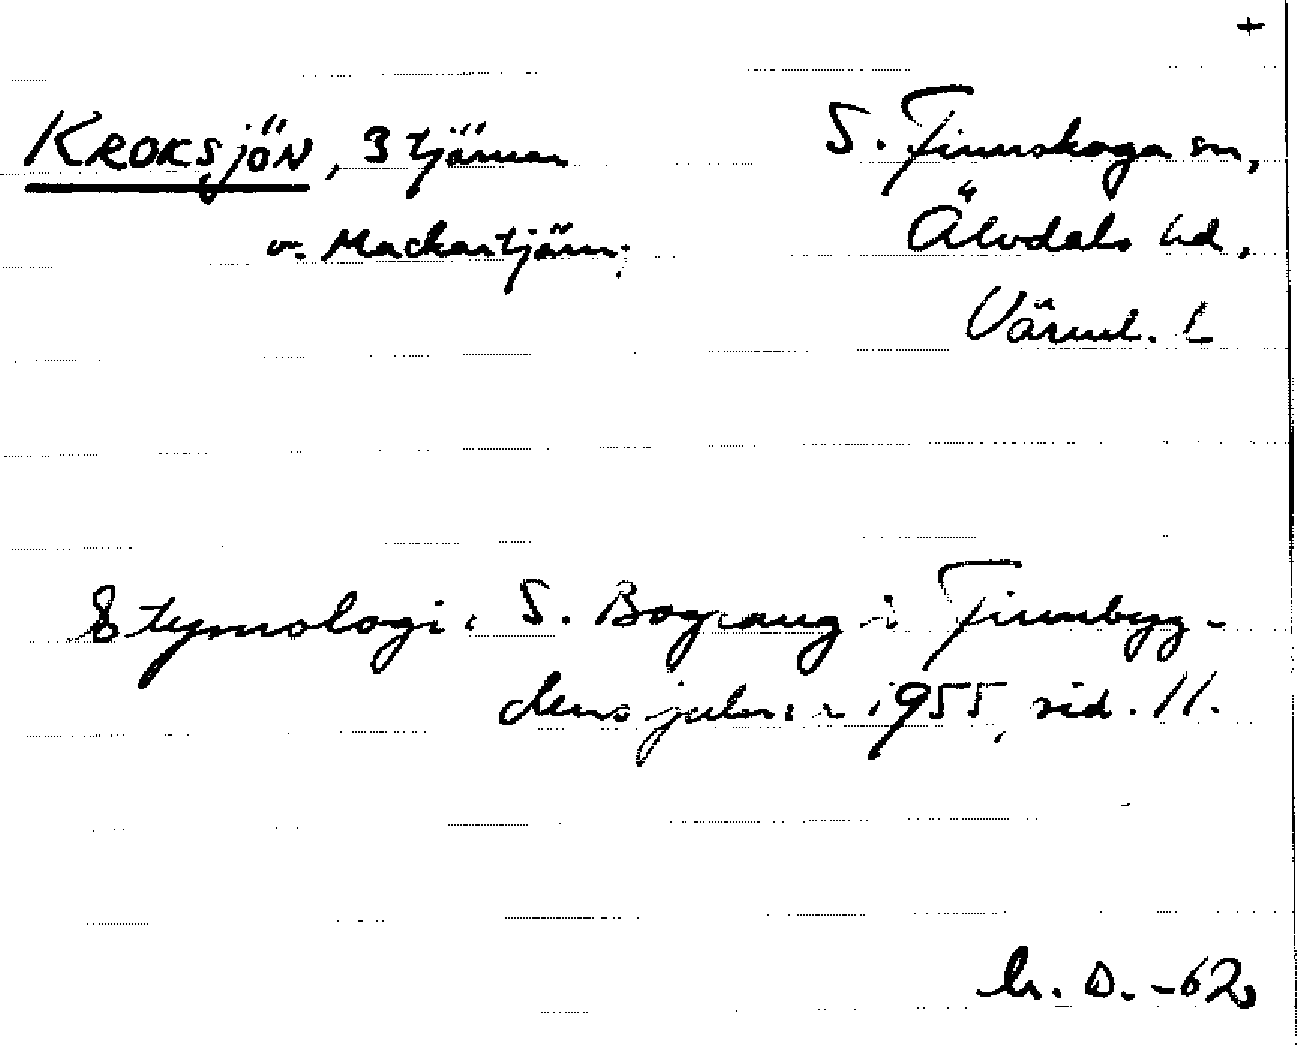 +
KROKSJÖN, 3 tjärnar
S. Finnskoga sn,
v. Mackartjärn.
Älvdals hd,
Värml. l.
Etymologi: S. Bograng i Finnbyg-
dens julnr 1955, sid. 11.
D. -62